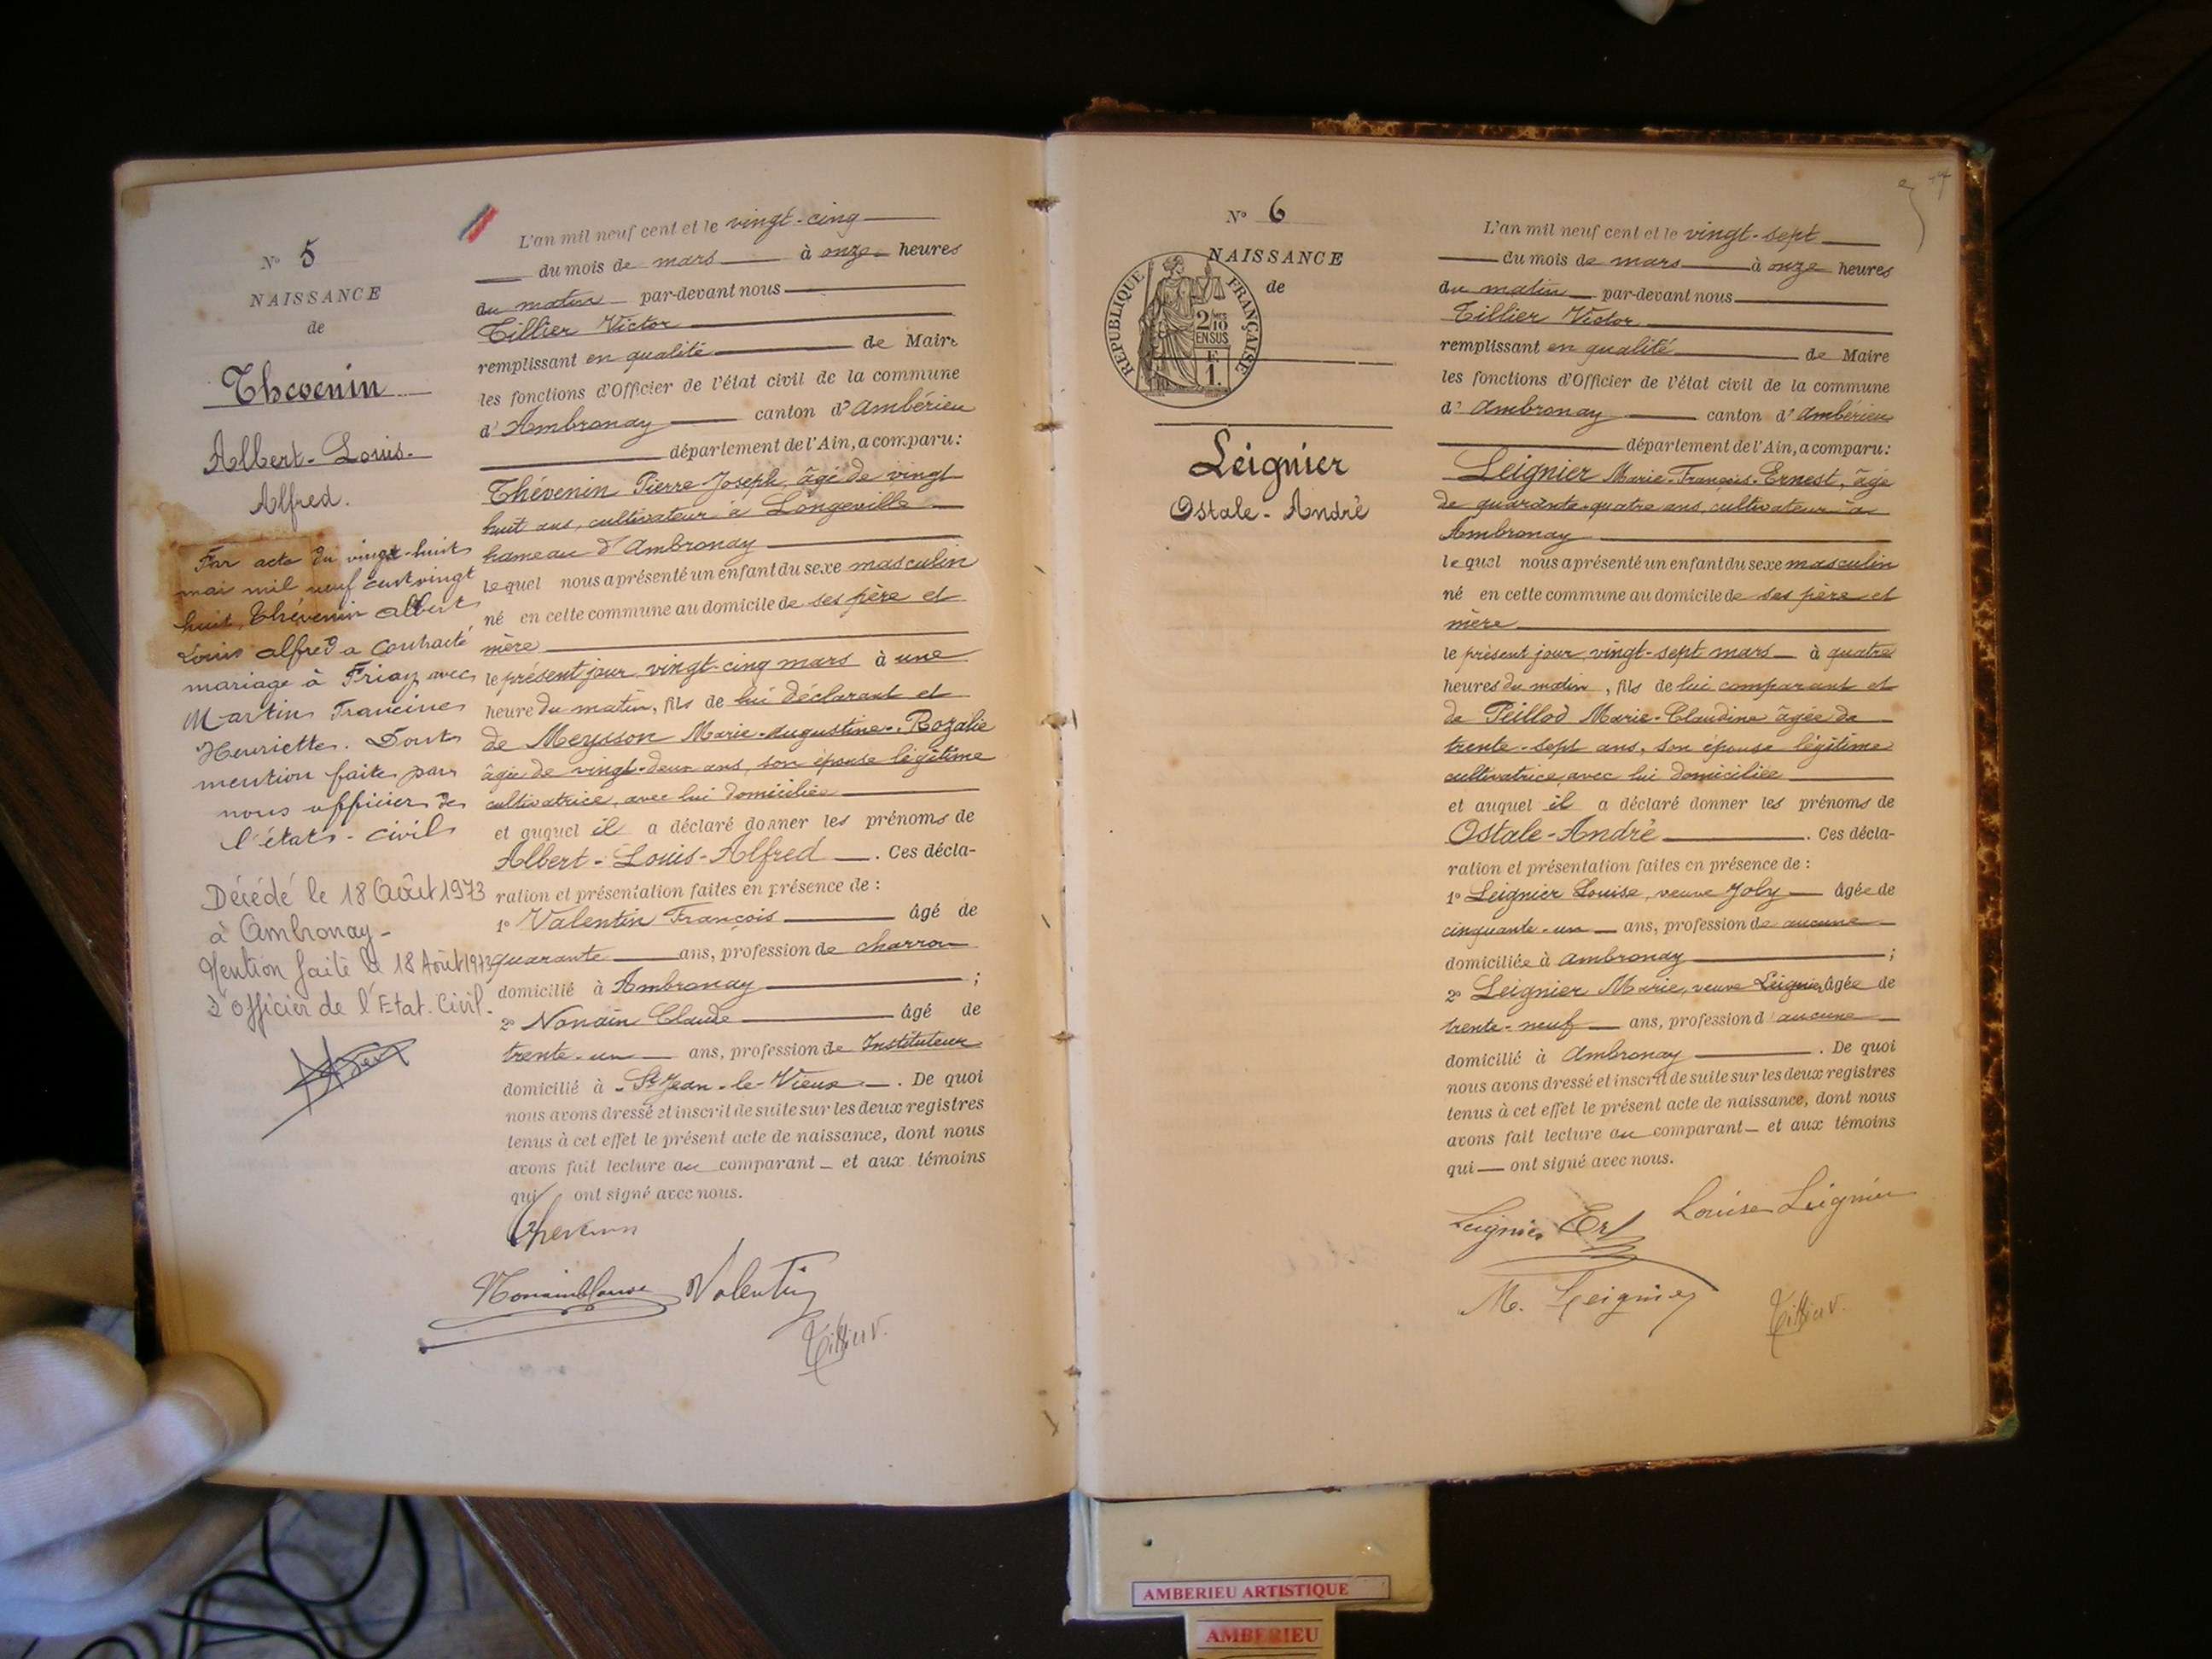 N° 5
NAISSANCE
de
Thevenin
Albert-Louis-
Alfred.
Par acte du vingt-huit
mai mil neuf cent vingt
huit, Thévenin Albert
Louis Alfred a contracté
mariage à Priay avec
Martin Francine
Henriette. Dont
mention faite par
nous officier de
l'état-civil
Décédé le 18 Août 1973
à Ambronay-
Mention faite le 18 Août 1973
L'officier de l'Etat-Civil.
L'an mil neuf cent et le vingt-cinq
du mois de mars à onze heures
du matin par-devant nous
Tillier Victor
remplissant en qualité de Maire
les fonctions d'Officier de l'état civil de la commune
d'Ambronay canton d'Ambérieu
département de l'Ain, a comparu:
Thévenin Pierre Joseph, âgé de vingt
huit ans, cultivateur à Longeville
hameau d'Ambronay
lequel nous a présenté un enfant du sexe masculin
né en cette commune au domicile de ses père et
mère
le présent jour vingt-cinq mars à une
heure du matin, fils de lui déclarant et
de Meysson Marie-Augustine-Rozalie
âgée de vingt-deux ans, son épouse légitime
cultivatrice, avec lui domiciliée
et auquel il a déclaré donner les prénoms de
Albert-Louis-Alfred. Ces décla-
ration et présentation faites en présence de :
1° Valentin François âgé de
quarante ans, profession de charron
domicilié à Ambronay ;
2° Nonain Claude âgé de
trente-un ans, profession de Instituteur
domicilié à St Jean-le-Vieux. De quoi
nous avons dressé et inscrit de suite sur les deux registres
tenus à cet effet le présent acte de naissance, dont nous
avons fait lecture au comparant et aux témoins
qui ont signé avec nous.
Thevenin
Nonain Claude Valentin
Tillier V.
N° 6
NAISSANCE
de
REPUBLIQUE FRANÇAISE
2/10
EN SUS
F.
1.
Leignier
Ostale-André
L'an mil neuf cent et le vingt-sept
du mois de mars à onze heures
du matin par-devant nous
Tillier Victor
remplissant en qualité de Maire
les fonctions d'Officier de l'état civil de la commune
d'Ambronay canton d'Ambérieu
département de l'Ain, a comparu:
Leignier Marie-François-Ernest, âgé
de quarante-quatre ans, cultivateur à
Ambronay
lequel nous a présenté un enfant du sexe masculin
né en cette commune au domicile de ses père et
mère
le présent jour vingt-sept mars à quatre
heures du matin, fils de lui comparant et
de Peillod Marie-Claudine âgée de
trente-sept ans, son épouse légitime
cultivatrice, avec lui domiciliée
et auquel il a déclaré donner les prénoms de
Ostale-André. Ces décla-
ration et présentation faites en présence de :
1° Leignier Louise, veuve Joly âgée de
cinquante-un ans, profession de aucune
domiciliée à Ambronay ;
2° Leignier Marie, veuve Leignier âgée de
trente-neuf ans, profession d'aucune
domicilié à Ambronay. De quoi
nous avons dressé et inscrit de suite sur les deux registres
tenus à cet effet le présent acte de naissance, dont nous
avons fait lecture au comparant et aux témoins
qui ont signé avec nous.
Leignier Louise Leignier
M. Leignier
Tillier V.
AMBERIEU ARTISTIQUE
AMBERIEU